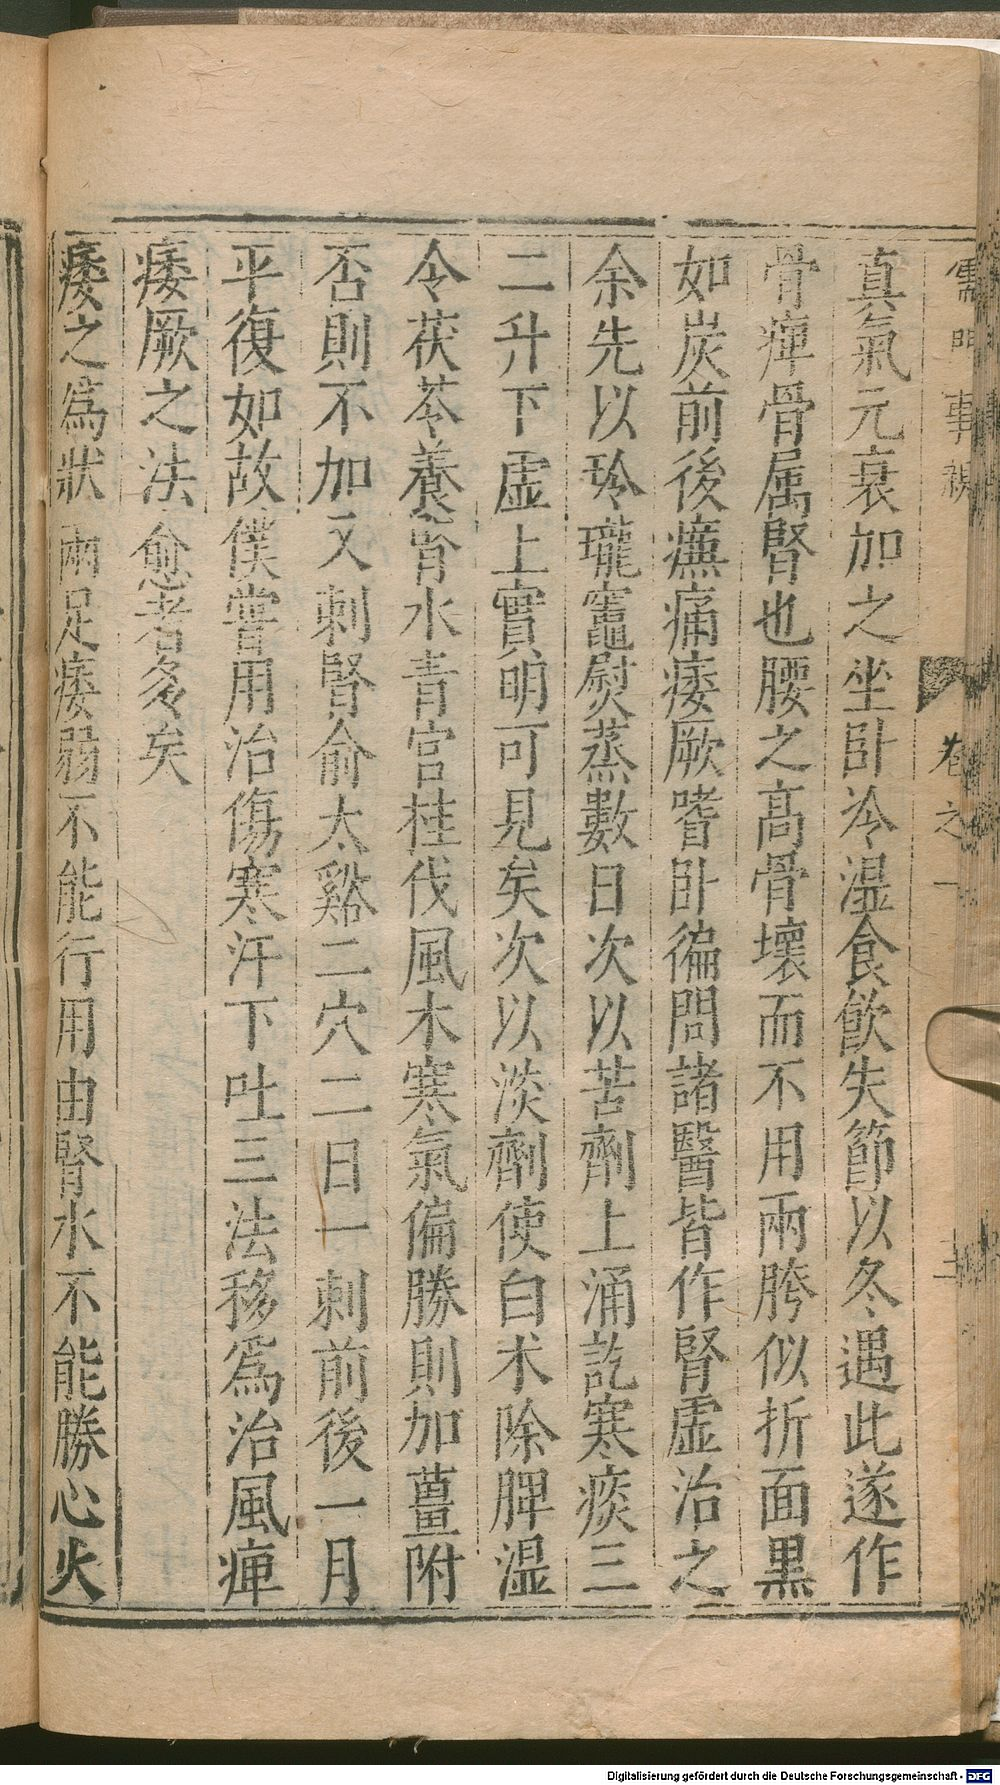 儒門事親 卷之一
真氣元衰加之坐臥冷湿食飲失節以冬遇此遂作
骨痺骨属腎也腰之高骨壞而不用兩胯似折面黒
如炭前後癄痛痿厥嗜卧徧問諸醫皆作腎虛治之
余先以玲瓏竈熨蒸數日次以苦劑上涌訖寒痰三
二升下虛上實明可見矣次以淡劑使白朮除脾湿
令茯苓養腎水青官桂伐風木寒氣偏勝則加薑附
否則不加又刺腎俞太谿二穴二日一刺前後一月
平復如故僕嘗用治傷寒汗下吐三法移爲治風痺
痿厥之法愈者多矣
痿之爲狀兩足痿弱不能行用由腎水不能勝心火
Digitalisierung gefördert durch die Deutsche Forschungsgemeinschaft - DFG